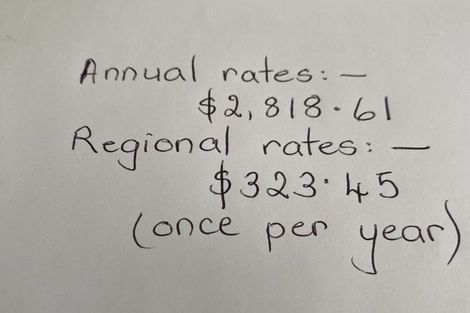 Annual rates: —
$2,818.61
Regional rates: —
$323.45
(once per year)